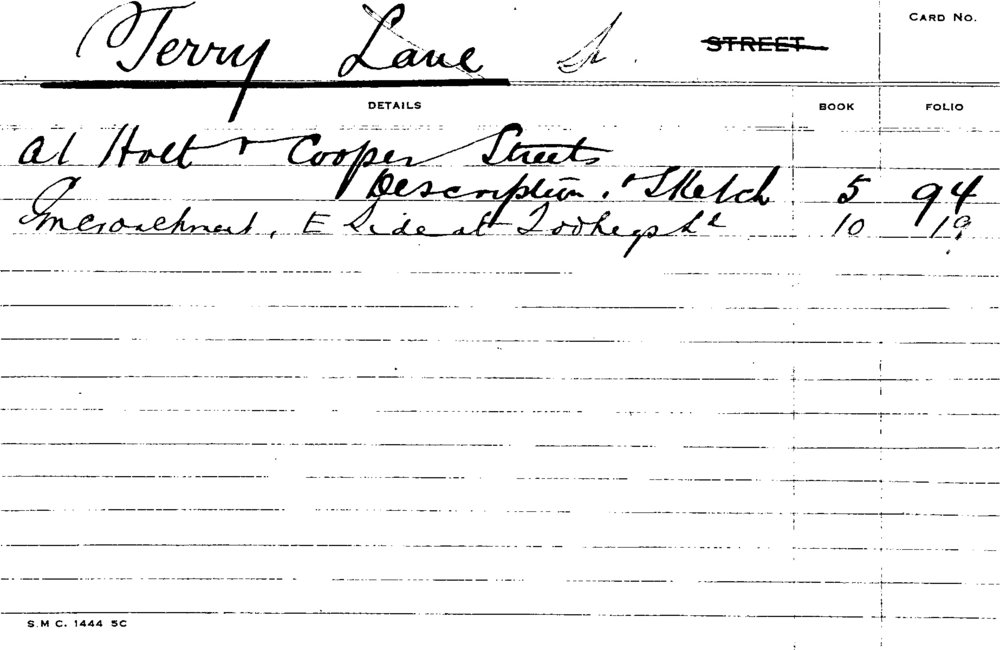 Terry Lane St. STREET
CARD NO.
DETAILS BOOK FOLIO
At Holt & Cooper Streets
Description & Sketch 5 94
Encroachment, E Side at Tooheys Ld 10 19
S.M C. 1444 5C